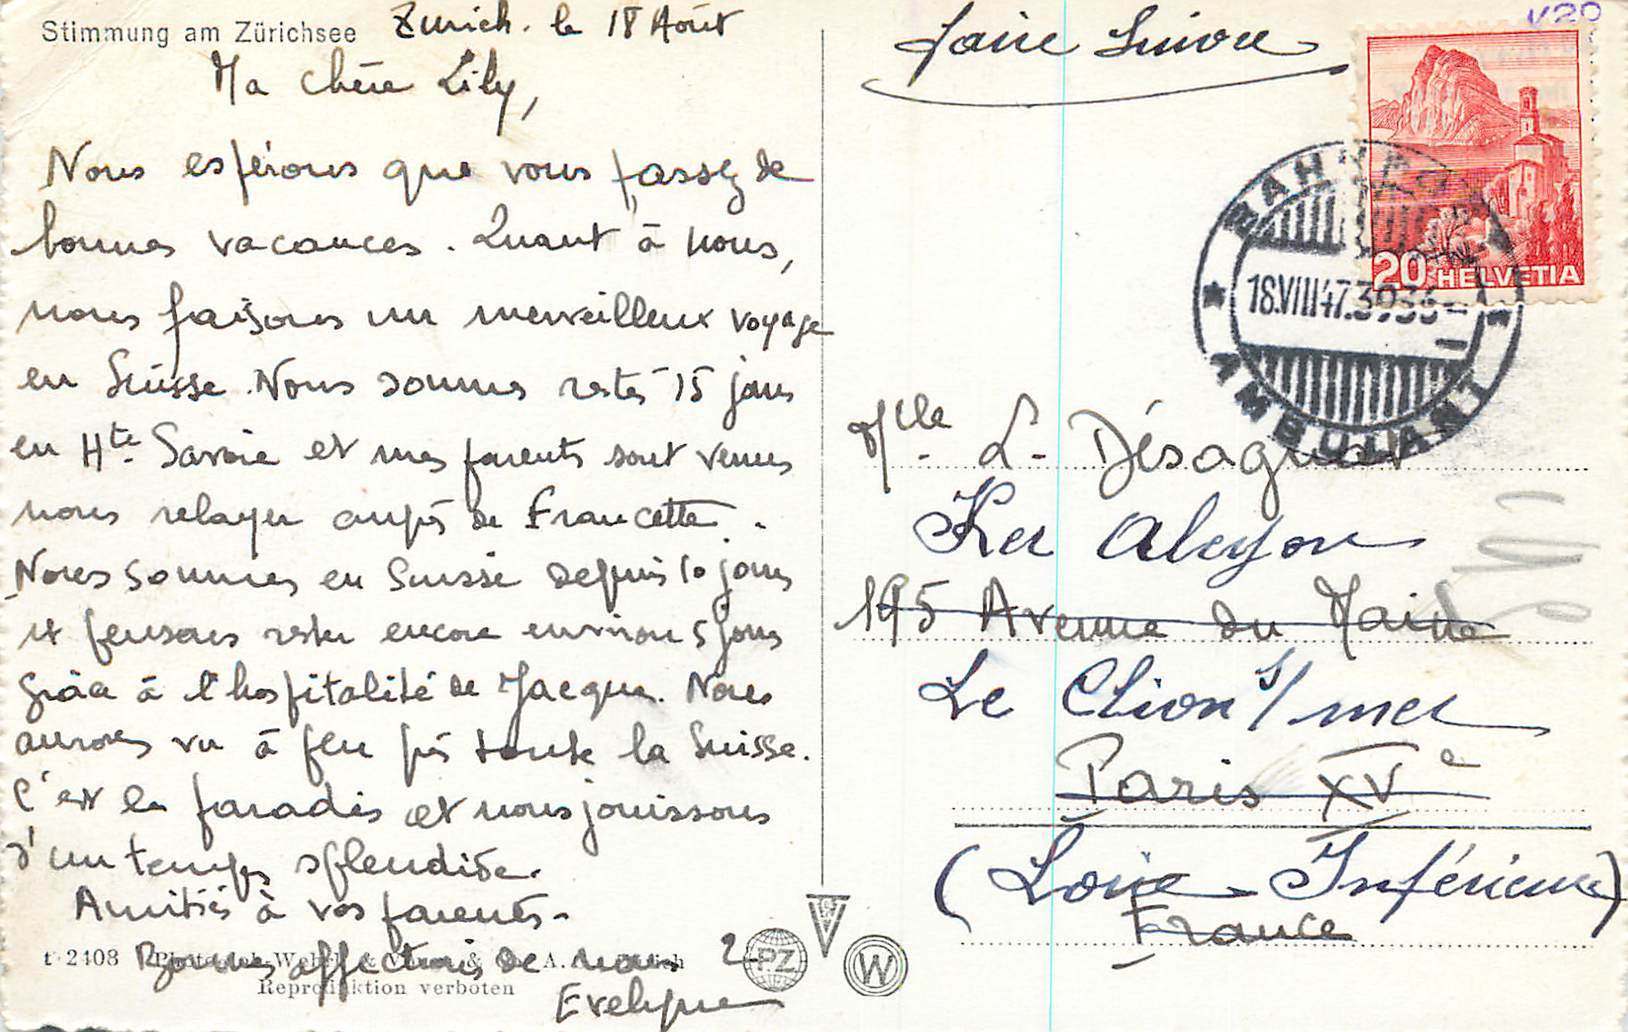 Stimmung am Zürichsee
Zurich. le 18 Août
Ma chère Lily,
Nous espérons que vous passez de
bonnes vacances. Quant à nous,
nous faisons un merveilleux voyage
en Suisse. Nous sommes restés 15 jours
en Hte. Savoie et mes parents sont venus
nous relayer auprès de Francette.
Nous sommes en Suisse depuis 10 jours
et pensons rester encore environ 5 jours
grâce à l'hospitalité de Jacques. Nous
aurons vu à peu près toute la Suisse.
C'est le paradis et nous jouissons
d'un temps splendide.
Amitiés à vos parents.
Bonnes affections de nous 2
Evelyne
t 2408
Reproduktion verboten
PZ
W
Faire Suivre
V20
20 HELVETIA
18.VIII 47.
AMBULANT
Mlle. L. Désagnat
Ker Alcyon
195 Avenue du Maine
Le Clion s/ mer
Paris XVe
(Loire-Inférieure)
France